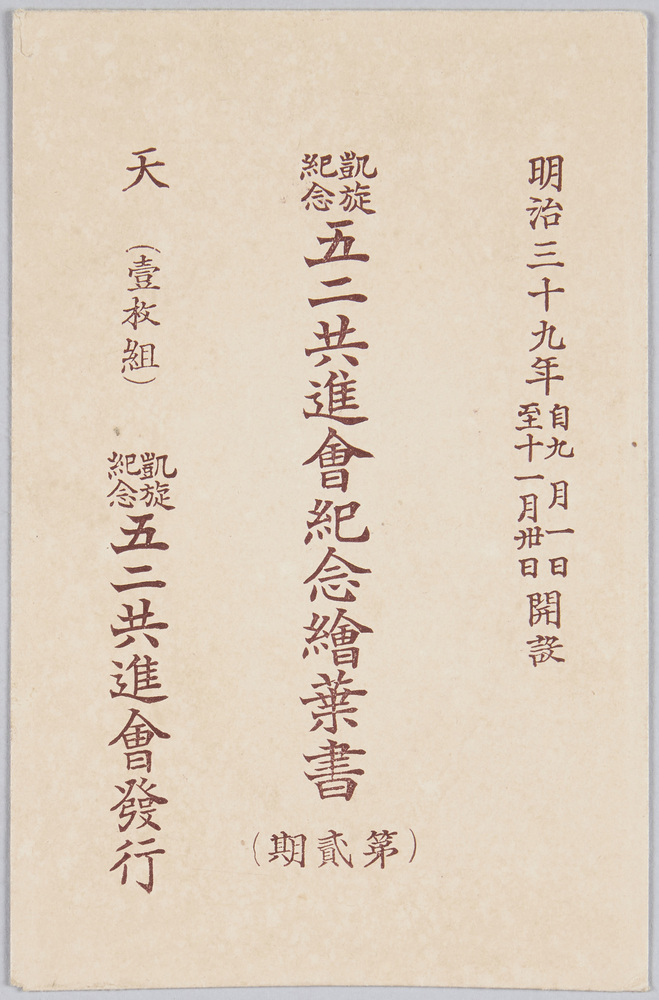 明治三十九年自九月一日至十一月卅日開設
凱旋紀念五二共進會紀念繪葉書
（第貳期）
天（壹枚組）
凱旋紀念五二共進會發行